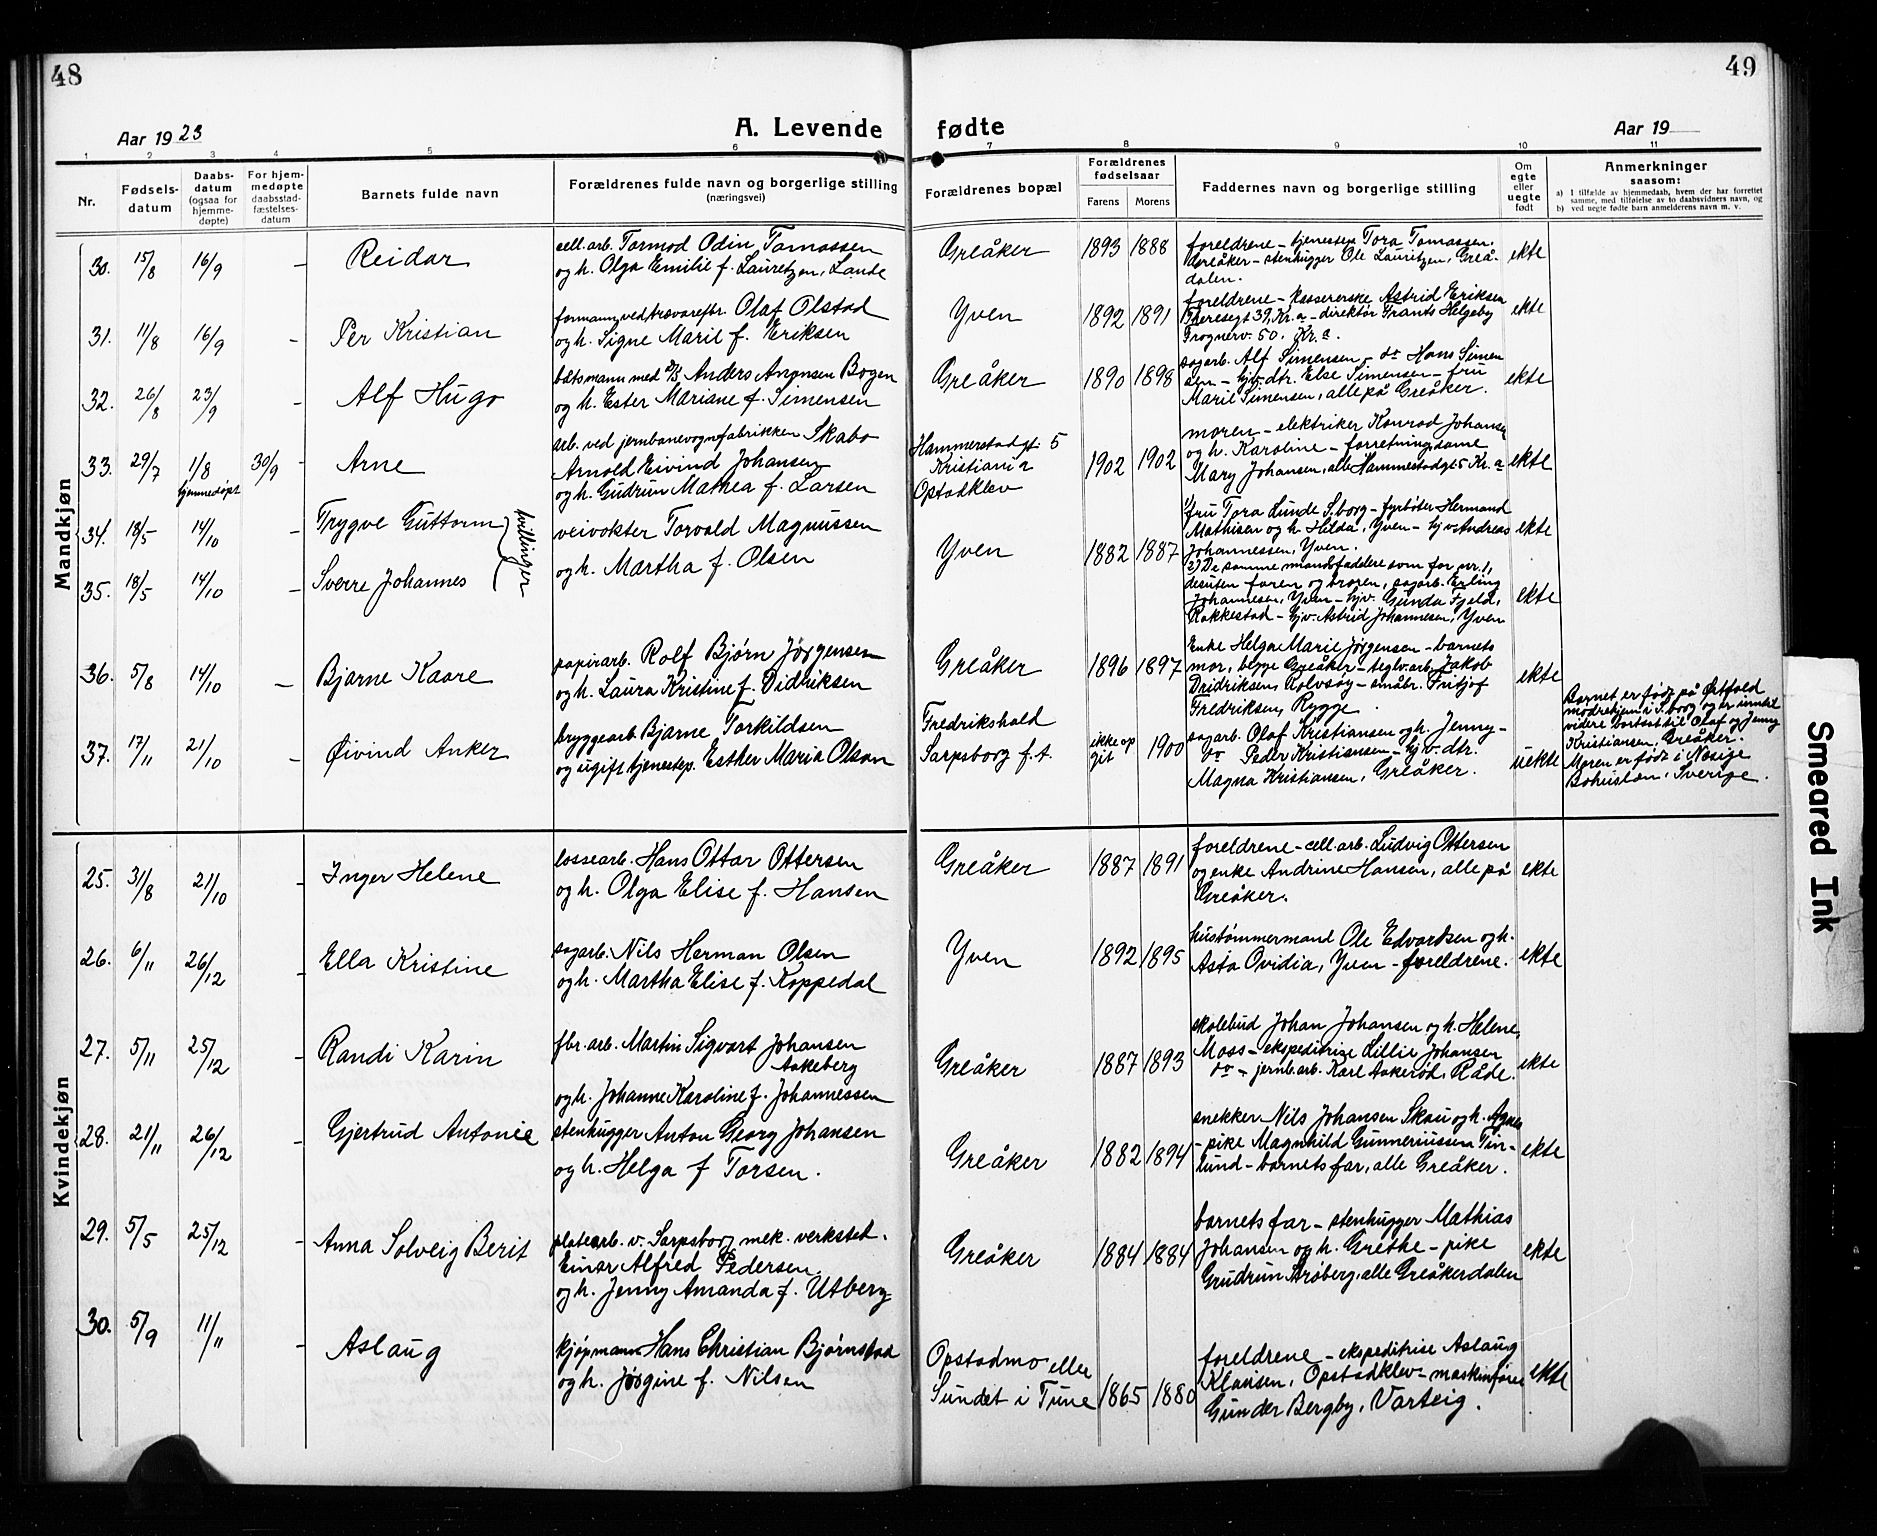 48
49
Aar 1923
A. Levende fødte
Aar 19
1 2 3 4 5 6 7 8 9 10 11
Nr.
Fødsels-
datum
Daabs-
datum
(ogsaa for
hjemme-
døpte)
For hjem-
medøpte
daabsstad-
fæstelses-
datum
Barnets fulde navn
Forældrenes fulde navn og borgerlige stilling
(næringsvei)
Forældrenes bopæl
Forældrenes
fødselsaar
Farens Morens
Faddernes navn og borgerlige stilling
Om
egte
eller
uegte
født
Anmerkninger
saasom:
a) I tilfælde av hjemmedaab, hvem der har forrettet
samme, med tilføielse av to daabsvidners navn, og
b) ved uegte fødte barn anmelderens navn m. v.
Mandkjøn
30. 15/8 16/9 – Reidar
cell.arb. Tormod Odin Tomassen
og h. Olga Emilie f. Lauretzen, Lande
Greåker 1893 1888
foreldrene – tjenestepi Tora Tomassen.
Greåker – stenhugger Ole Lauritzen, Greå-
dalen.
ekte
31. 11/8 16/9 – Per Kristian
formann ved trævarefbr. Olaf Olstad
og h. Signe Marie f. Eriksen
Yven 1892 1891
foreldrene – kassererske Astrid Eriksen
Theresegt 39, Kr.a – direktør Frants Helgeby
Frognerv. 50. Kr.a.
ekte
32. 26/8 23/9 – Alf Hugo
båtsmann med D/S. Anders Aronsen Bogen
og h. Ester Mariane f. Simensen
Greåker 1890 1898
sagarb. Alf Simensen – do Hans Simen
sen – hjv. dtr. Else Simensen – fru
Marie Simensen, alle på Greåker.
ekte
33. 29/7 1/8 30/9 – Arne
hjemmedøpt
arb. ved jernbanevognfabrikken Skabo
Arnold Eivind Johansen
og h. Gudrun Mathea f. Larsen
Hammerstadgt. 5
Kristiania
Opstadklev
1902 1902
moren – elektriker Konrad Johansen
og h. Karoline – forretningsdame
Mary Johansen, alle Hammerstadgt 5 Kr.a
ekte
34. 18/5 14/10 – Trygve Guttorm
35. 18/5 14/10 – Sverre Johannes
tvillinger
veivokter Torvald Magnussen
og h. Martha f. Olsen
Yven 1882 1887
1) fru Tora Lunde S.borg – fyrbøter Hermand
Mathisen og h. Hilda, Yven – hjv Andreas
Johannessen, Yven.
2) De samme mandsfaddere som for nr. 1,
desuten faren og broren, sagarb. Erling
Johannesen, Yven – hjv. Gunda Fjeld,
Rakkestad – hjv. Astrid Johannesen, Yven
ekte
ekte
36. 5/8 14/10 – Bjarne Kaare
papirarb. Rolf Bjørn Jørgensen
og h. Laura Kristine f. Didriksen
Greåker 1896 1897
Enke Helga Marie Jørgensen – barnets
mor, begge Greåker – teglv.arb. Jakob
Dridriksen, Rolvsøy – småbr. Fritjof
Fredriksen, Rygge.
ekte
37. 17/11 21/10 – Øivind Anker
bryggearb. Bjarne Torkildsen
og ugift tjenestep. Esther Maria Olson
Fredrikshald
Sarpsborg f.t.
ikke op
git
1900
sagarb. Olaf Kristiansen og h. Jenny –
do Peder Kristiansen – hj.v. dtr.
Magna Kristiansen, Greåker.
uekte
Barnet er født på Østfold
mødrehjem i S.borg og er
videre bortsat til Olaf og Jenny
Kristiansen, Greåker.
Moren er født i Næsige
Bohuslän, Sverige.
Kvindekjøn
25. 31/8 21/10 – Inger Helene
lossearb. Hans Ottar Ottersen
og h. Olga Elise f. Hansen
Greåker 1887 1891
foreldrene – cell.arb. Ludvig Ottersen
og enke Andrine Hansen, alle på
Greåker.
ekte
26. 6/11 26/12 – Ella Kristine
sagarb. Nils Herman Olsen
og h. Martha Elise f. Koppedal
Yven 1892 1895
hustømmermand Ole Edvardsen og h.
Asta Ovidia, Yven – foreldrene.
ekte
27. 5/11 25/12 – Randi Karin
fbr. arb. Martin Sigvart Johansen
Aakeberg
og h. Johanne Karoline f. Johannessen
Greåker 1887 1893
skolebud Johan Johansen og h. Helene,
Moss – ekspeditrise Lillie Johansen
do – jernb.arb. Karl Aakerød, Råde.
ekte
28. 21/11 26/12 – Gjertrud Antonie
stenhugger Anton Georg Johansen
og h. Helga f Torsen.
Greåker 1882 1894
snekker Nils Johansen Skau og h. Agnes
– pike Magnhild Gunneriussen Tin-
lund – barnets far, alle Greåker.
ekte
29. 5/5 25/12 – Anna Solveig Berit
platearb. v. Sarpsborg mek. verksted.
Einar Alfred Pedersen
og h. Jenny Amanda f. Utberg
Greåker 1884 1884
barnets far – stenhugger Mathias
Johansen og h. Grethe – pike
Grudrun Strøberg, alle Greåkerdalen
ekte
30. 5/9 11/11 – Aslaug
kjøpmann Hans Christian Bjørnstad
og h. Jørgine f. Nilsen
Opstadmo eller
Sundet i Tune
1865 1880
foreldrene – ekspeditrise Aslaug
Klausen, Opstadklev – maskinfører
Gunder Bergby, Varteig.
ekte
Smeared Ink